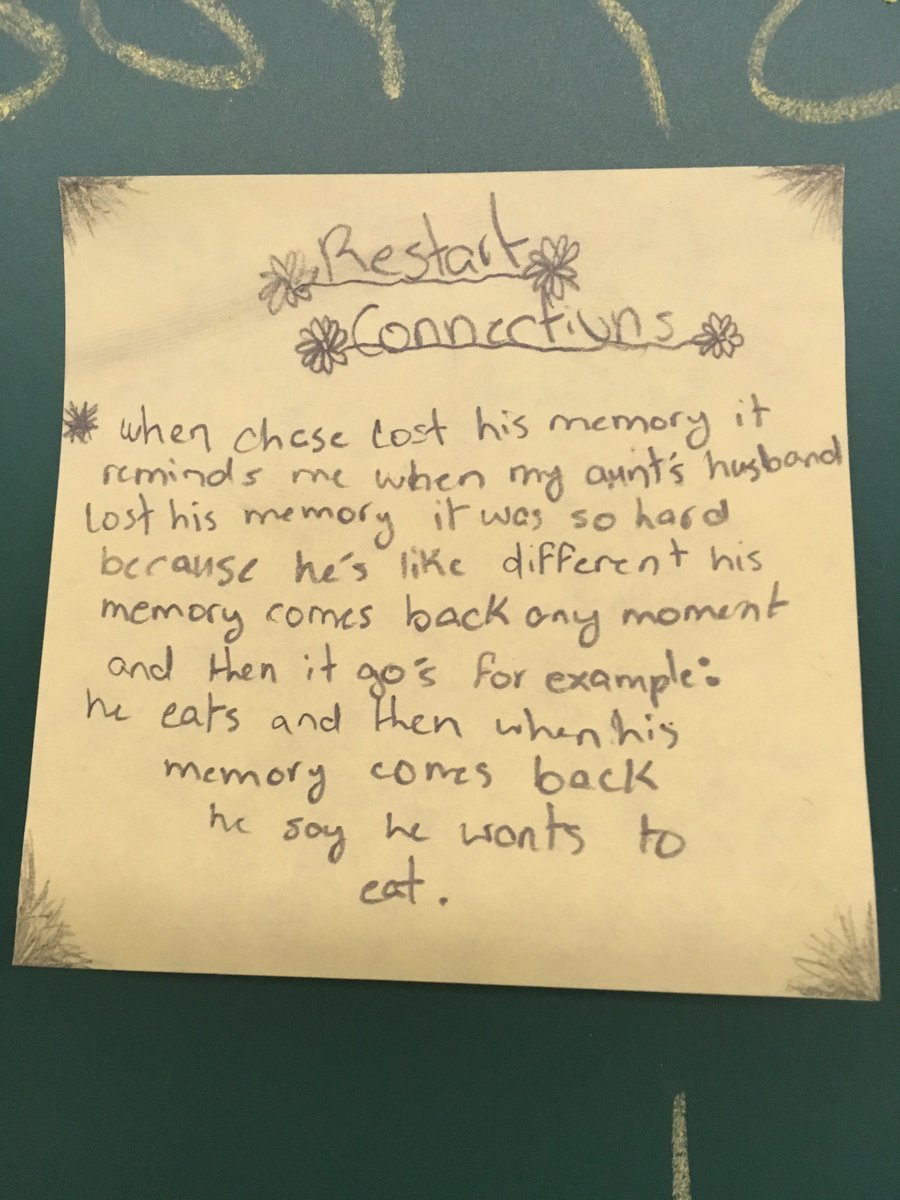 Restart
Connections
when chase lost his memory it
reminds me when my aunt's husband
lost his memory it was so hard
because he's like different his
memory comes back any moment
and then it go's for example:
he eats and then when his
memory comes back
he say he wants to
eat.